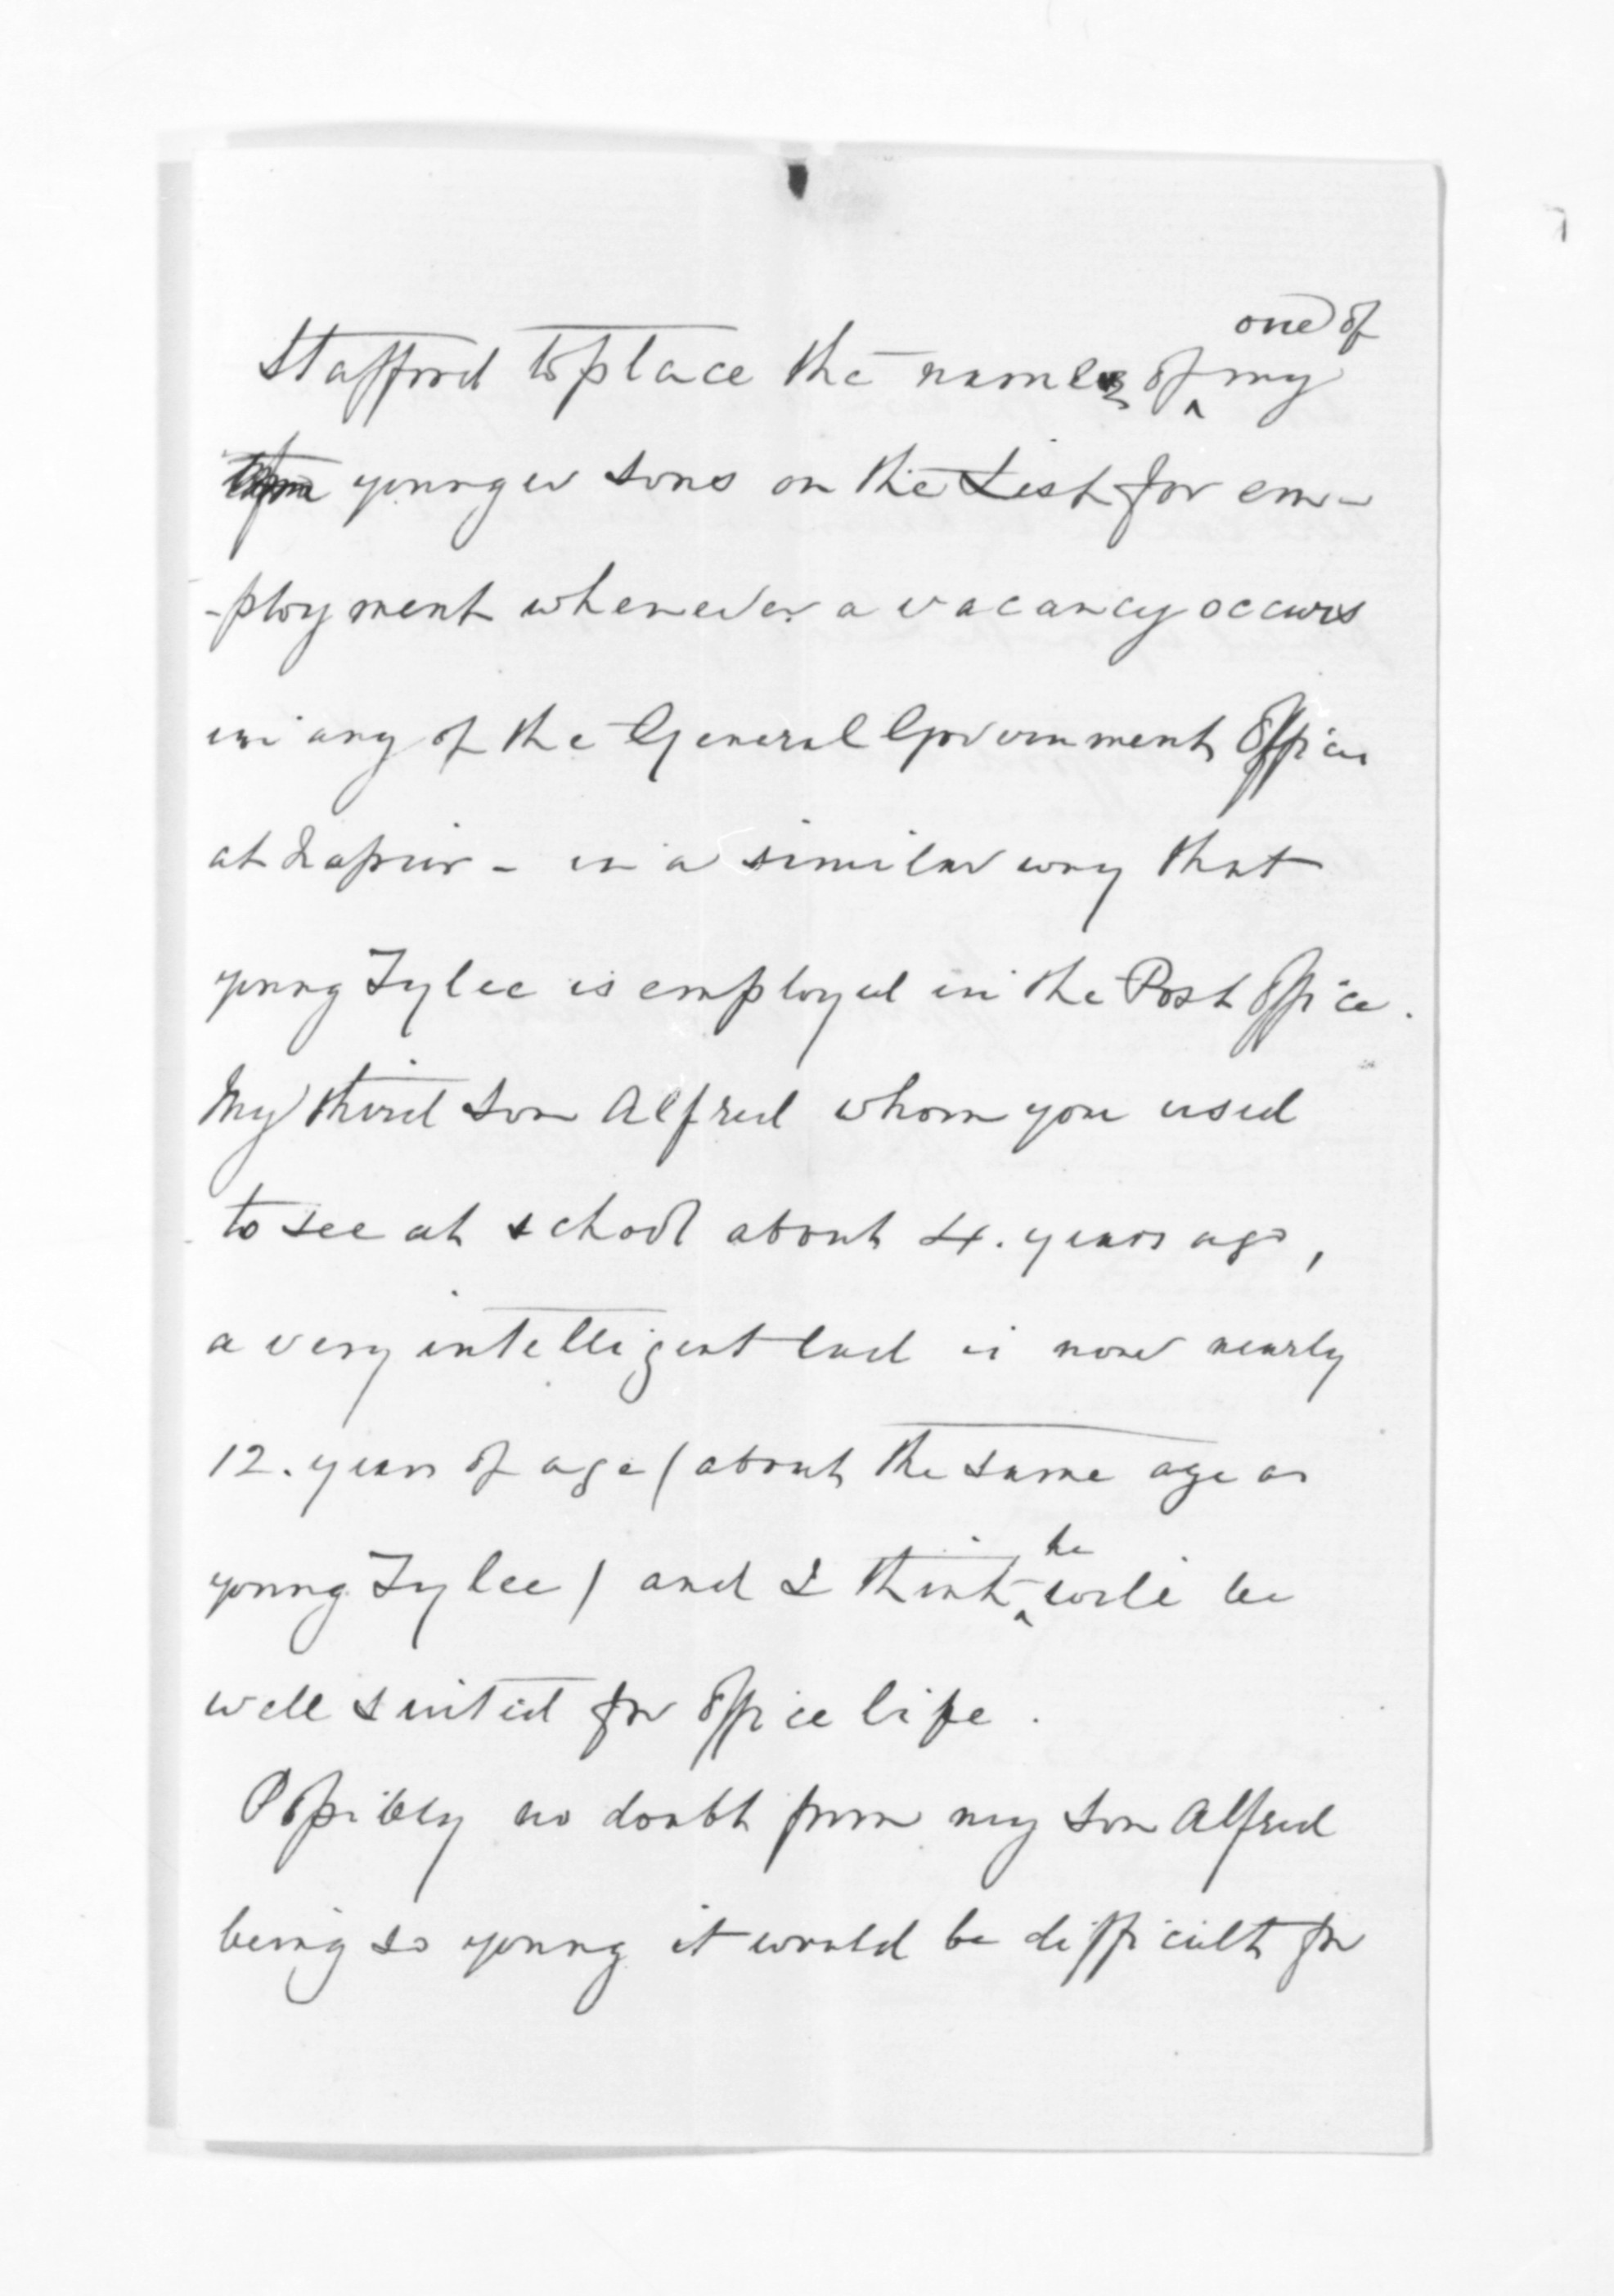 Stafford to place the name of one of my
younger sons on the List for em-
-ployment whenever a vacancy occurs
in any of the General Government Offices
at Napier - in a similar way that
young Tylee is employed in the Post Office.
My third son Alfred whom you used
to see at school about 4. years ago,
a very intelligent lad is now nearly
12. years of age (about the same age as
young Tylee) and I think he will be
well suited for office life.
Possibly no doubt from my son Alfred
being so young it would be difficult for